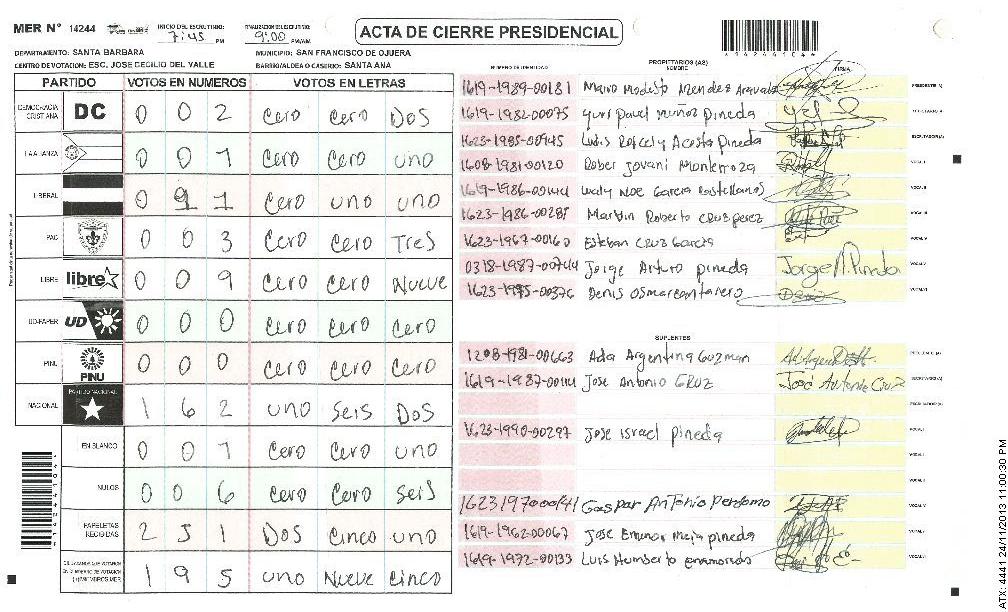 MER N° 14244 INICIO DEL ESCRUTINIO: 7:45 PM FINALIZACION DEL ESCRUTINIO: 9:00 PM/AM ACTA DE CIERRE PRESIDENCIAL
DEPARTAMENTO: SANTA BARBARA MUNICIPIO: SAN FRANCISCO DE OJUERA
CENTRO DE VOTACION: ESC. JOSE CECILIO DEL VALLE BARRIO/ALDEA O CASERIO: SANTA ANA
PARTIDO VOTOS EN NUMEROS VOTOS EN LETRAS
DEMOCRACIA CRISTIANA DC 0 0 2 Cero Cero Dos
LA ALIANZA 0 0 1 Cero Cero uno
LIBERAL 0 1 1 Cero uno uno
PAC 0 0 3 Cero Cero Tres
LIBRE libre 0 0 9 Cero Cero Nueve
UD-FAPER UD 0 0 0 Cero Cero Cero
PINU PINU 0 0 0 Cero Cero Cero
NACIONAL PARTIDO NACIONAL 1 6 2 uno seis Dos
EN BLANCO 0 0 1 Cero Cero uno
NULOS 0 0 6 Cero Cero seis
PAPELETAS RECIBIDAS 2 5 1 Dos Cinco uno
1 9 5 uno Nueve Cinco
NUMERO DE IDENTIDAD PROPIETARIOS (AS) NOMBRE FIRMA
1619-1989-00181 Mario Modesto Mendez PRESIDENTE(A)
1619-1982-00075 Yuri Pavel Muñoz Pineda SECRETARIO(A)
1623-1985-00145 Acosta Pineda ESCRUTADOR(A)
1608-1981-00120 Rober Jovani VOCAL I
1619-1986-00144 Noe Garcia Castellanos VOCAL II
1623-1986-00289 Martin Roberto Cruz perez VOCAL III
1623-1967-00160 Esteban Cruz Garcia VOCAL IV
0318-1987-00744 Jorge Arturo pineda Jorge A. Pineda VOCAL V
1623-1985-00376 Denis Osmar VOCAL VI
SUPLENTES
1208-1981-00663 Ada Argentina Guzman PRESIDENTE(A)
1619-1987-00144 Jose Antonio CRUZ José Antonio Cruz SECRETARIO(A)
ESCRUTADOR(A)
1623-1990-00297 Jose Israel pineda VOCAL I
1623197000141 Gaspar Antonio Perdomo
1619-1962-00067 Jose Mejia pineda
1619-1972-00133 Luis Humberto enamorado
ATX: 4441 24/11/2013 11:00:30 PM